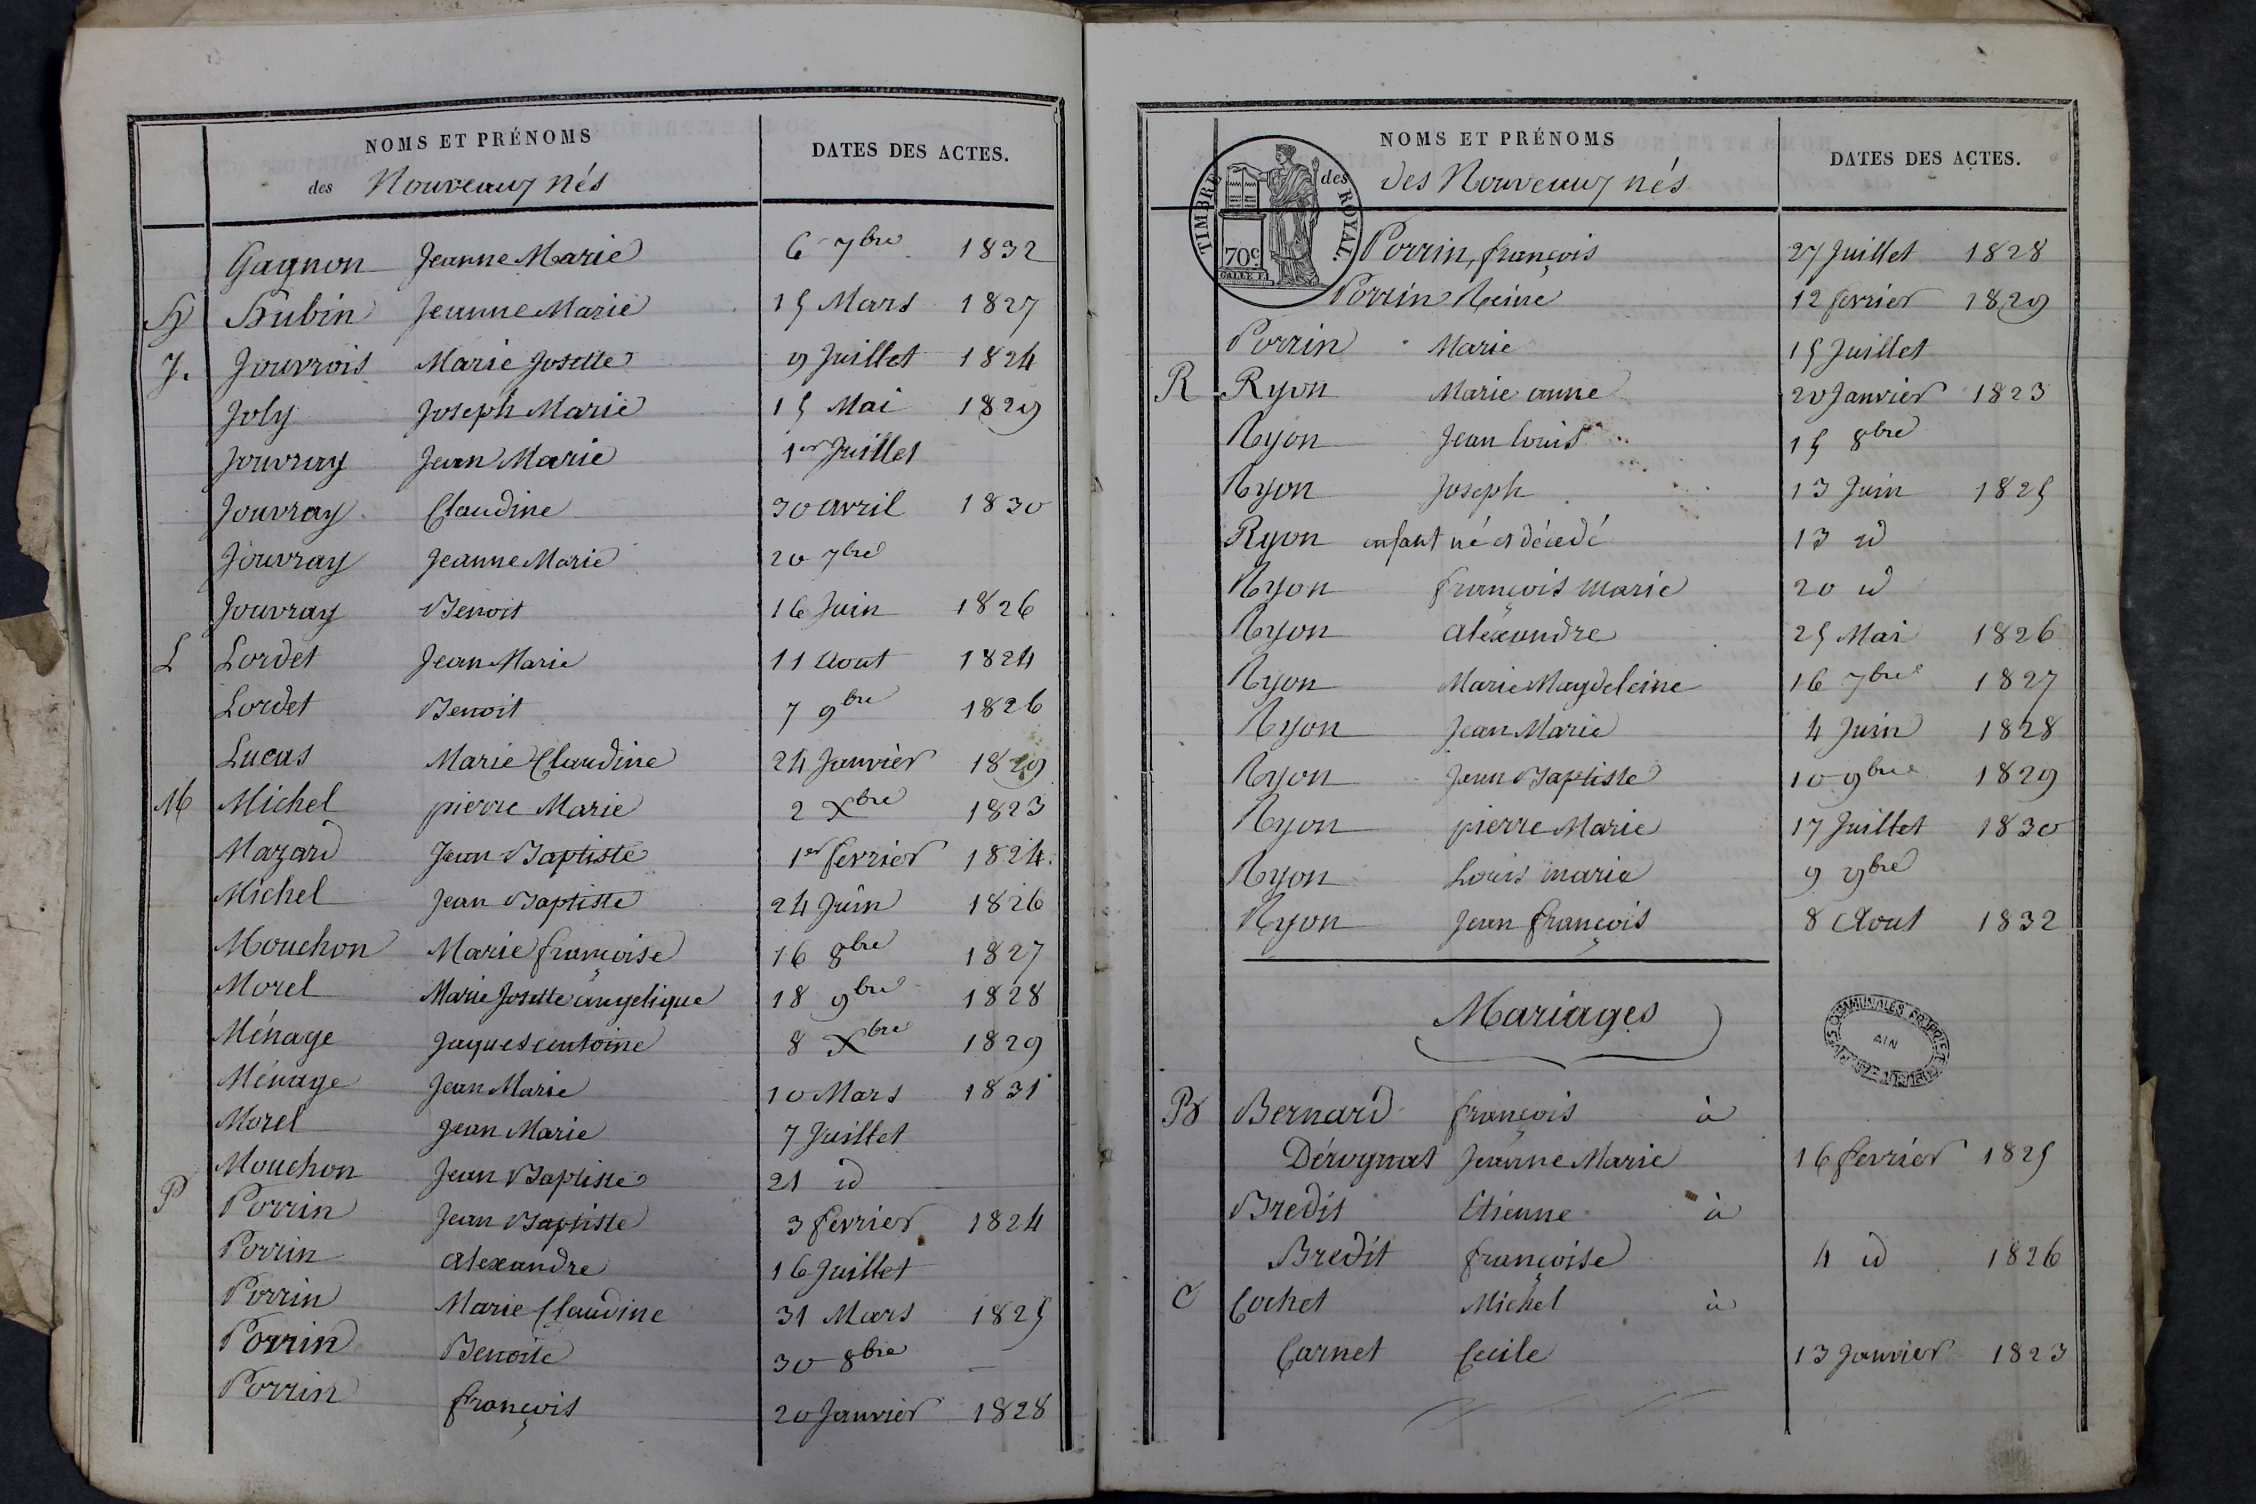 NOMS ET PRÉNOMS
des Nouveaux nés
DATES DES ACTES.
Gagnon Jeanne Marie 6 7bre 1832
H Hubin Jeanne Marie 15 Mars 1827
J. Jouvrois Marie Josette 9 Juillet 1824
Joly Joseph Marie 15 Mai 1829
Jouvray Jean Marie 1er Juillet
Jouvray Claudine 30 avril 1830
Jouvray Jeanne Marie 20 7bre
Jouvray Benoit 16 Juin 1826
L Lordet Jean Marie 11 Aout 1824
Lordet Benoit 7 9bre 1826
Lucas Marie Claudine 24 Janvier 1829
M Michel pierre Marie 2 Xbre 1823
Mazard Jean Baptiste 1er fevrier 1824.
Michel Jean Baptiste 24 Juin 1826
Mouchon Marie françoise 16 8bre 1827
Morel Marie Josette angelique 18 9bre 1828
Ménage Jaques antoine 8 Xbre 1829
Ménage Jean Marie 10 Mars 1831
Morel Jean Marie 7 Juillet
Mouchon Jean Baptiste 21 id
P Porrin Jean Baptiste 3 fevrier 1824
Porrin Alexandre 16 Juillet
Porrin Marie Claudine 31 Mars 1825
Porrin Benoite 30 8bre
Porrin françois 20 Janvier 1828
NOMS ET PRÉNOMS
des
des Nouveaux nés
DATES DES ACTES.
TIMBRE ROYAL.
70c.
Porrin, françois 27 Juillet 1828
Porrin Reine 12 fevrier 1829
Porrin Marie 15 Juillet
R Ryon Marie anne 20 Janvier 1823
Ryon Jean Louis 15 8bre
Ryon Joseph 13 Juin 1825
Ryon enfant né et décédé 13 id
Ryon françois marie 20 id
Ryon alexandre 25 Mai 1826
Ryon Marie Magdeleine 16 7bre 1827
Ryon Jean Marie 4 Juin 1828
Ryon Jean Baptiste 10 9bre 1829
Ryon pierre Marie 17 Juillet 1830
Ryon Louis marie 9 9bre
Ryon Jean françois 8 Aout 1832
Mariages
COMMUNALES
AIN
B Bernard françois à
Dérognat Jeanne Marie 16 fevrier 1825
Bredit Etienne à
Bredit françoise 4 id 1826
C Cochet Michel à
Carnet Cecile 13 Janvier 1823